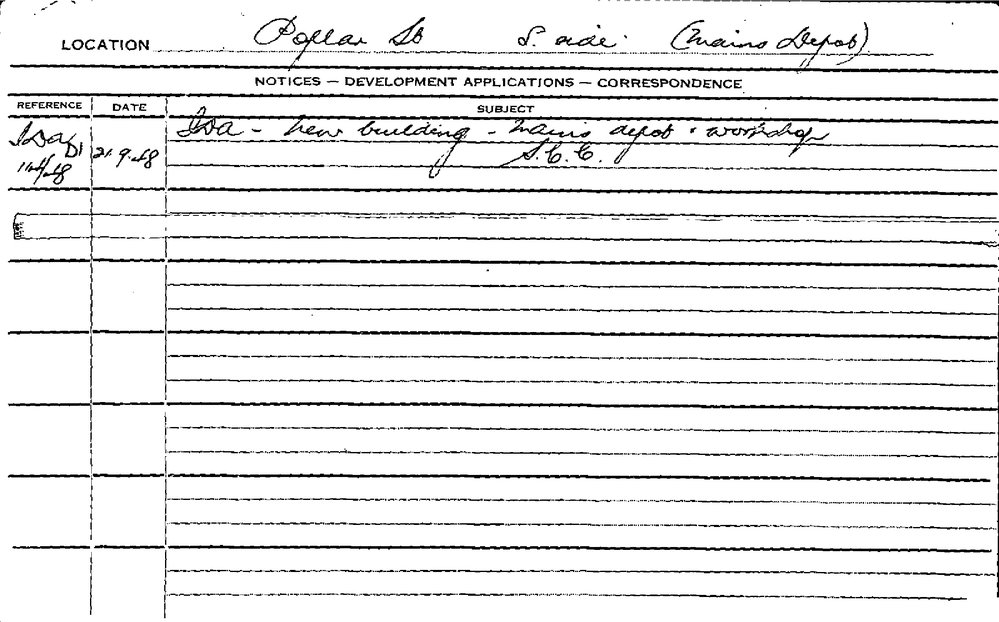 LOCATION St S. side (Mains Depot)
NOTICES — DEVELOPMENT APPLICATIONS — CORRESPONDENCE
REFERENCE DATE SUBJECT
Ida - New building - Mains depot & workshop
21.9.48 S.C.C.